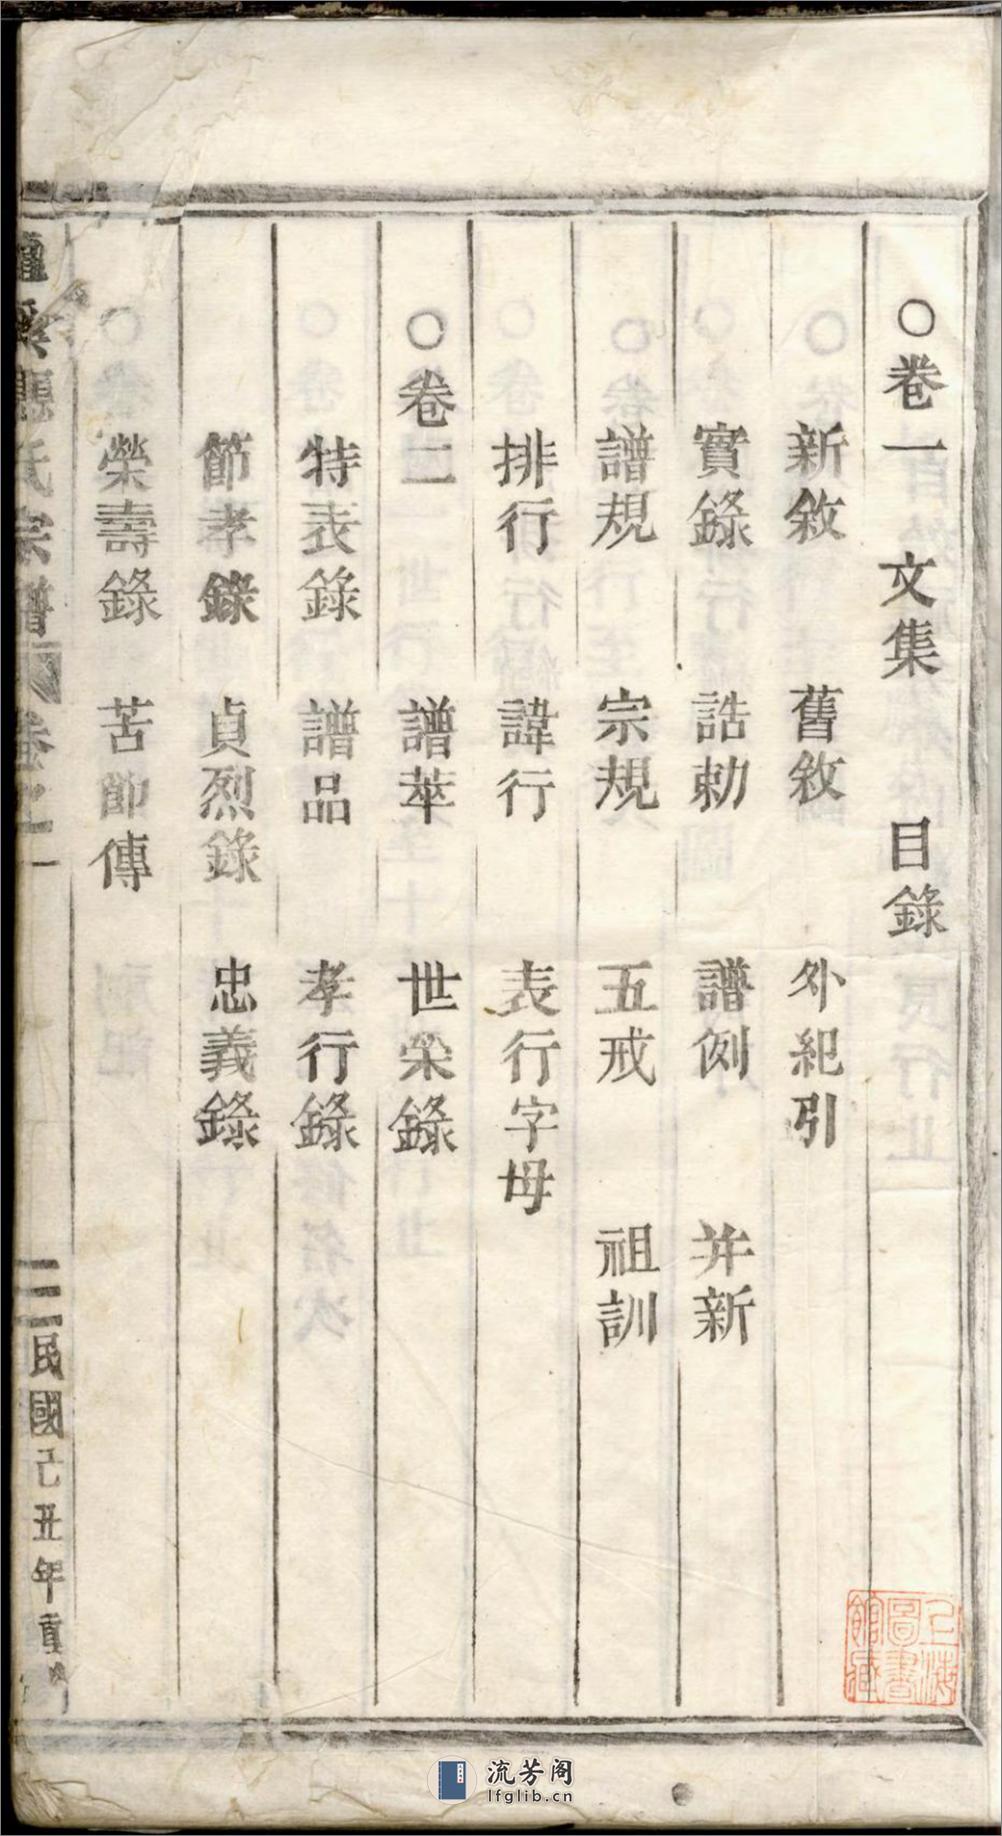 ○卷一 文集 目錄
新敘 舊敘 外紀引
實錄 誥勅 譜例 并新
譜規 宗規 五戒 祖訓
排行 諱行 表行字母
○卷二 譜萃 世榮錄
特表錄 譜品 孝行錄
節孝錄 貞烈錄 忠義錄
榮壽錄 苦節傳
氏宗譜 卷之一 三 民國己丑年重
上海圖書館藏
流芳阁
lfglib.cn